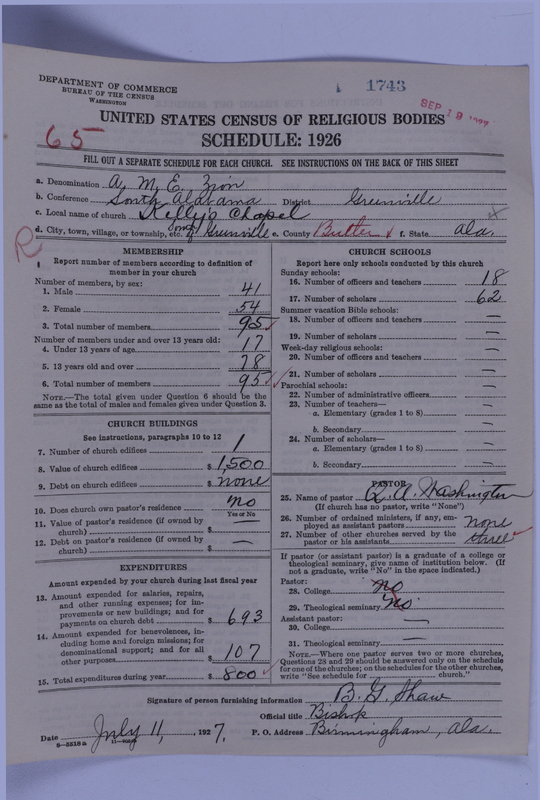 DEPARTMENT OF COMMERCE
BUREAU OF THE CENSUS
WASHINGTON
1743
SEP 19 1927
UNITED STATES CENSUS OF RELIGIOUS BODIES
SCHEDULE: 1926
65
FILL OUT A SEPARATE SCHEDULE FOR EACH CHURCH. SEE INSTRUCTIONS ON THE BACK OF THIS SHEET
a. Denomination A. M. E. Zion
b. Conference South Alabama District Greenville
c. Local name of church Kelly's Chapel
d. City, town, village, or township, etc. Greenville e. County Butler f. State Ala.
R
MEMBERSHIP
Report number of members according to definition of member in your church
Number of members, by sex:
1. Male 41
2. Female 54
3. Total number of members 95
Number of members under and over 13 years old:
4. Under 13 years of age 17
5. 13 years old and over 78
6. Total number of members 95
NOTE.—The total given under Question 6 should be the
same as the total of males and females given under Question 3.
CHURCH BUILDINGS
See instructions, paragraphs 10 to 12
7. Number of church edifices 1
8. Value of church edifices $ 1,500
9. Debt on church edifices $ none
10. Does church own pastor's residence no
Yes or No
11. Value of pastor's residence (if owned by
church) $ —
12. Debt on pastor's residence (if owned by
church) $ —
EXPENDITURES
Amount expended by your church during last fiscal year
13. Amount expended for salaries, repairs,
and other running expenses; for im-
provements or new buildings; and for
payments on church debt $ 693
14. Amount expended for benevolences, in-
cluding home and foreign missions; for
denominational support; and for all
other purposes $ 107
15. Total expenditures during year $ 800
CHURCH SCHOOLS
Report here only schools conducted by this church
Sunday schools:
16. Number of officers and teachers 18
17. Number of scholars 62
Summer vacation Bible schools:
18. Number of officers and teachers —
19. Number of scholars —
Week-day religious schools:
20. Number of officers and teachers —
21. Number of scholars —
Parochial schools:
22. Number of administrative officers —
23. Number of teachers—
a. Elementary (grades 1 to 8) —
b. Secondary —
24. Number of scholars—
a. Elementary (grades 1 to 8) —
b. Secondary —
PASTOR
25. Name of pastor Washington
(If church has no pastor, write "None")
26. Number of ordained ministers, if any, em-
ployed as assistant pastors none
27. Number of other churches served by the
pastor or his assistants three
If pastor (or assistant pastor) is a graduate of a college or
theological seminary, give name of institution below. (If
not a graduate, write "No" in the space indicated.)
Pastor:
28. College no
29. Theological seminary no
Assistant pastor:
30. College —
31. Theological seminary —
NOTE.—Where one pastor serves two or more churches,
Questions 28 and 29 should be answered only on the schedule
for one of the churches; on the schedules for the other churches,
write "See schedule for church."
Signature of person furnishing information B. G. Shaw
Official title Bishop
Date July 11, 1927. P. O. Address Birmingham, Ala.